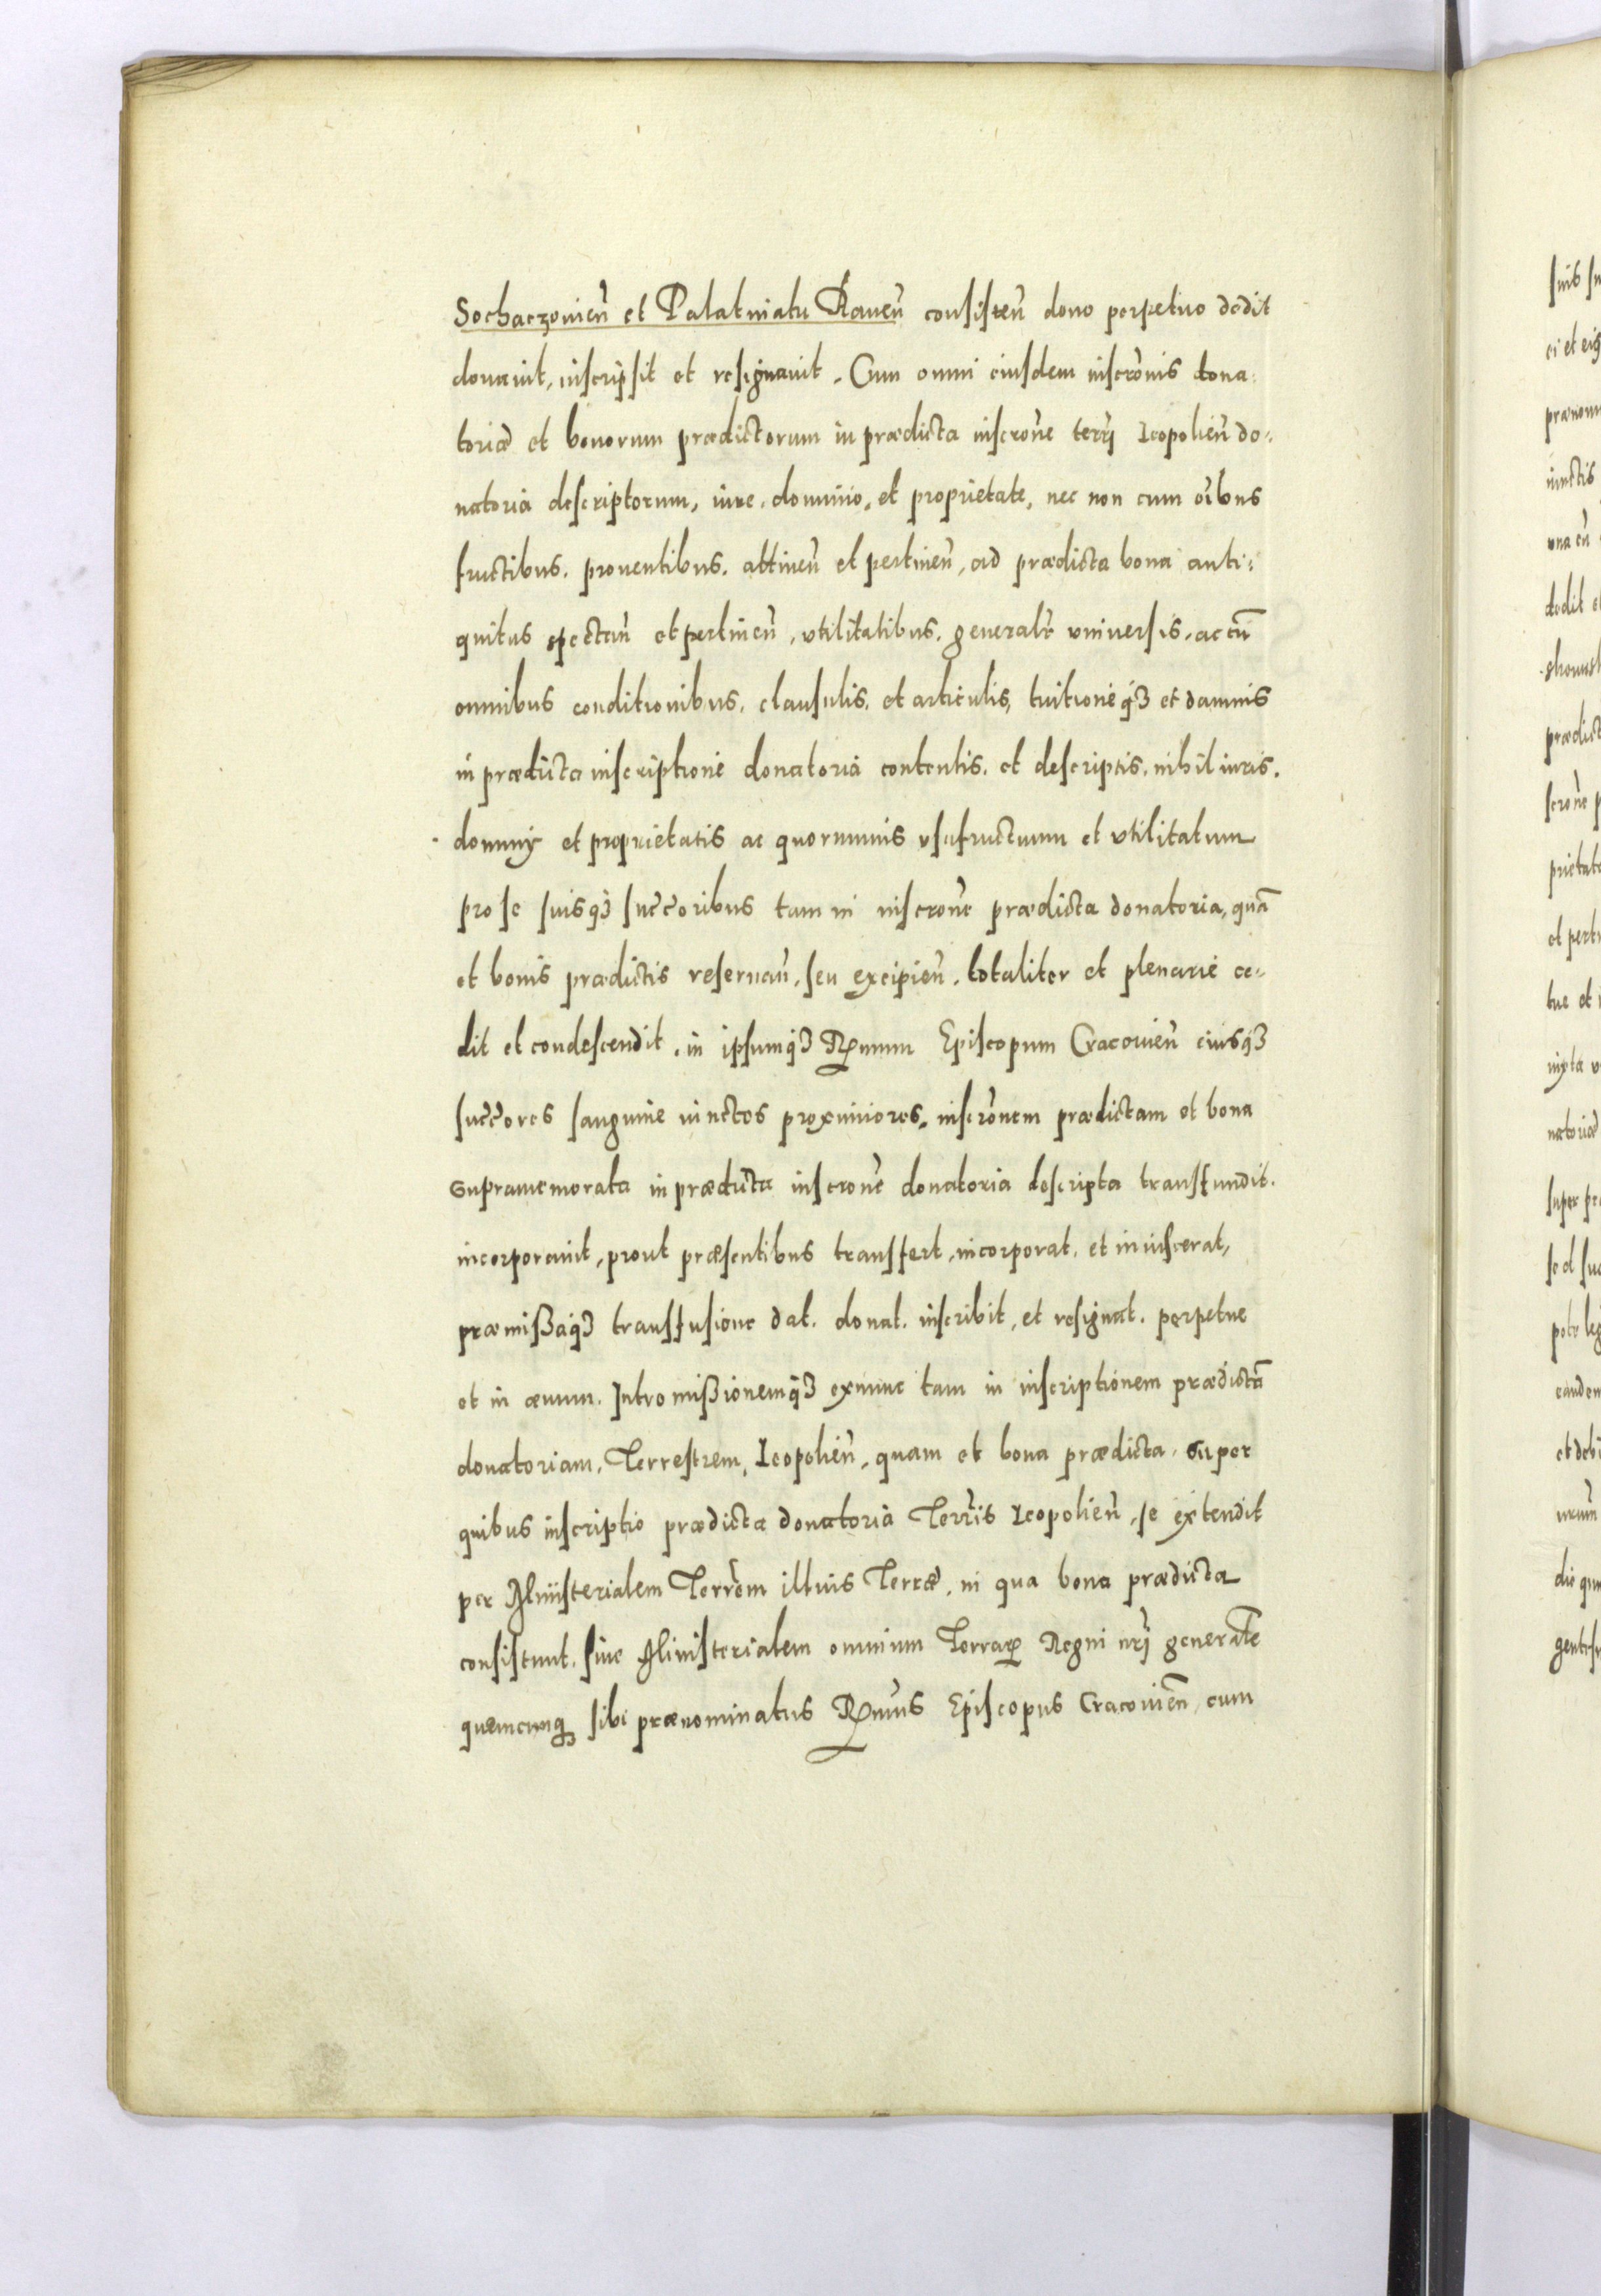 Sochaczouien̄ et Palatinatu Rauen̄ consisten̄ dono perpetuo dedit
donauit, inscripsit et resignauit. Cum omni eiusdem inscrōnis dona:
toriæ et bonorum prædictorum in prædicta inscrōne terr̄j Leopolien̄ do:
natoria descriptorum, iure, dominio, et proprietate, nec non cum oībus
fructibus, prouentibus, attinen̄ et pertinen̄, ad prædicta bona anti:
quitus spectan̄ et pertinen̄, vtilitatibus, generalr̄ vniuersis, ac cū
omnibus conditionibus, clausulis, et articulis, tuitioneq3 et damnis
in prædicta inscriptione donatoria contentis, et descriptis, nihil iuris,
dominij et proprietatis ac quorumuis vsufructuum et vtilitatum
pro se suisq3 succ̄oribus tam in inscrōne prædicta donatoria, quā
et bonis prædictis reseruan̄, seu excipien̄, totaliter et plenarie ce:
dit et condescendit, in ipsumq3 Rn̄mum Episcopum Cracouien̄ eiusq3
succ̄ores sanguine iunctos proximiores, inscrōnem prædictam et bona
supramemorata in prædicta inscrōne donatoria descripta transfundit,
incorporauit, prout præsentibus transfert, incorporat, et inuiscerat,
præmißaq3 transfusione dat, donat, inscribit, et resignat, perpetue
et in æuum. Intromißionemq3 exnunc tam in inscriptionem prædictā
donatoriam, Terrestrem, Leopolien̄, quam et bona prædicta, super
quibus inscriptio prædicta donatoria Terr̄is Leopolien̄, se extendit
per Ministerialem Terr̄em illius Terræ, in qua bona prædicta
consistunt, siue Ministerialem omnium Terrarꝝ Regni nr̄j generalē
quemcunq3 sibi prænominatus Rn̄mus Episcopus Cracouien̄, cum